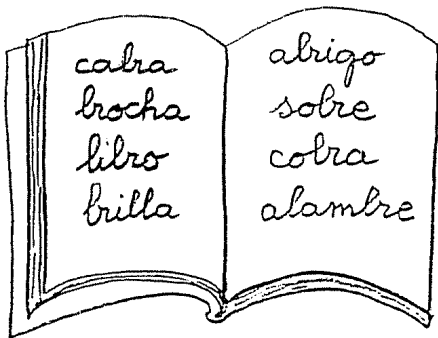 cabra
brocha
libro
brilla
abrigo
sobre
cobra
alambre